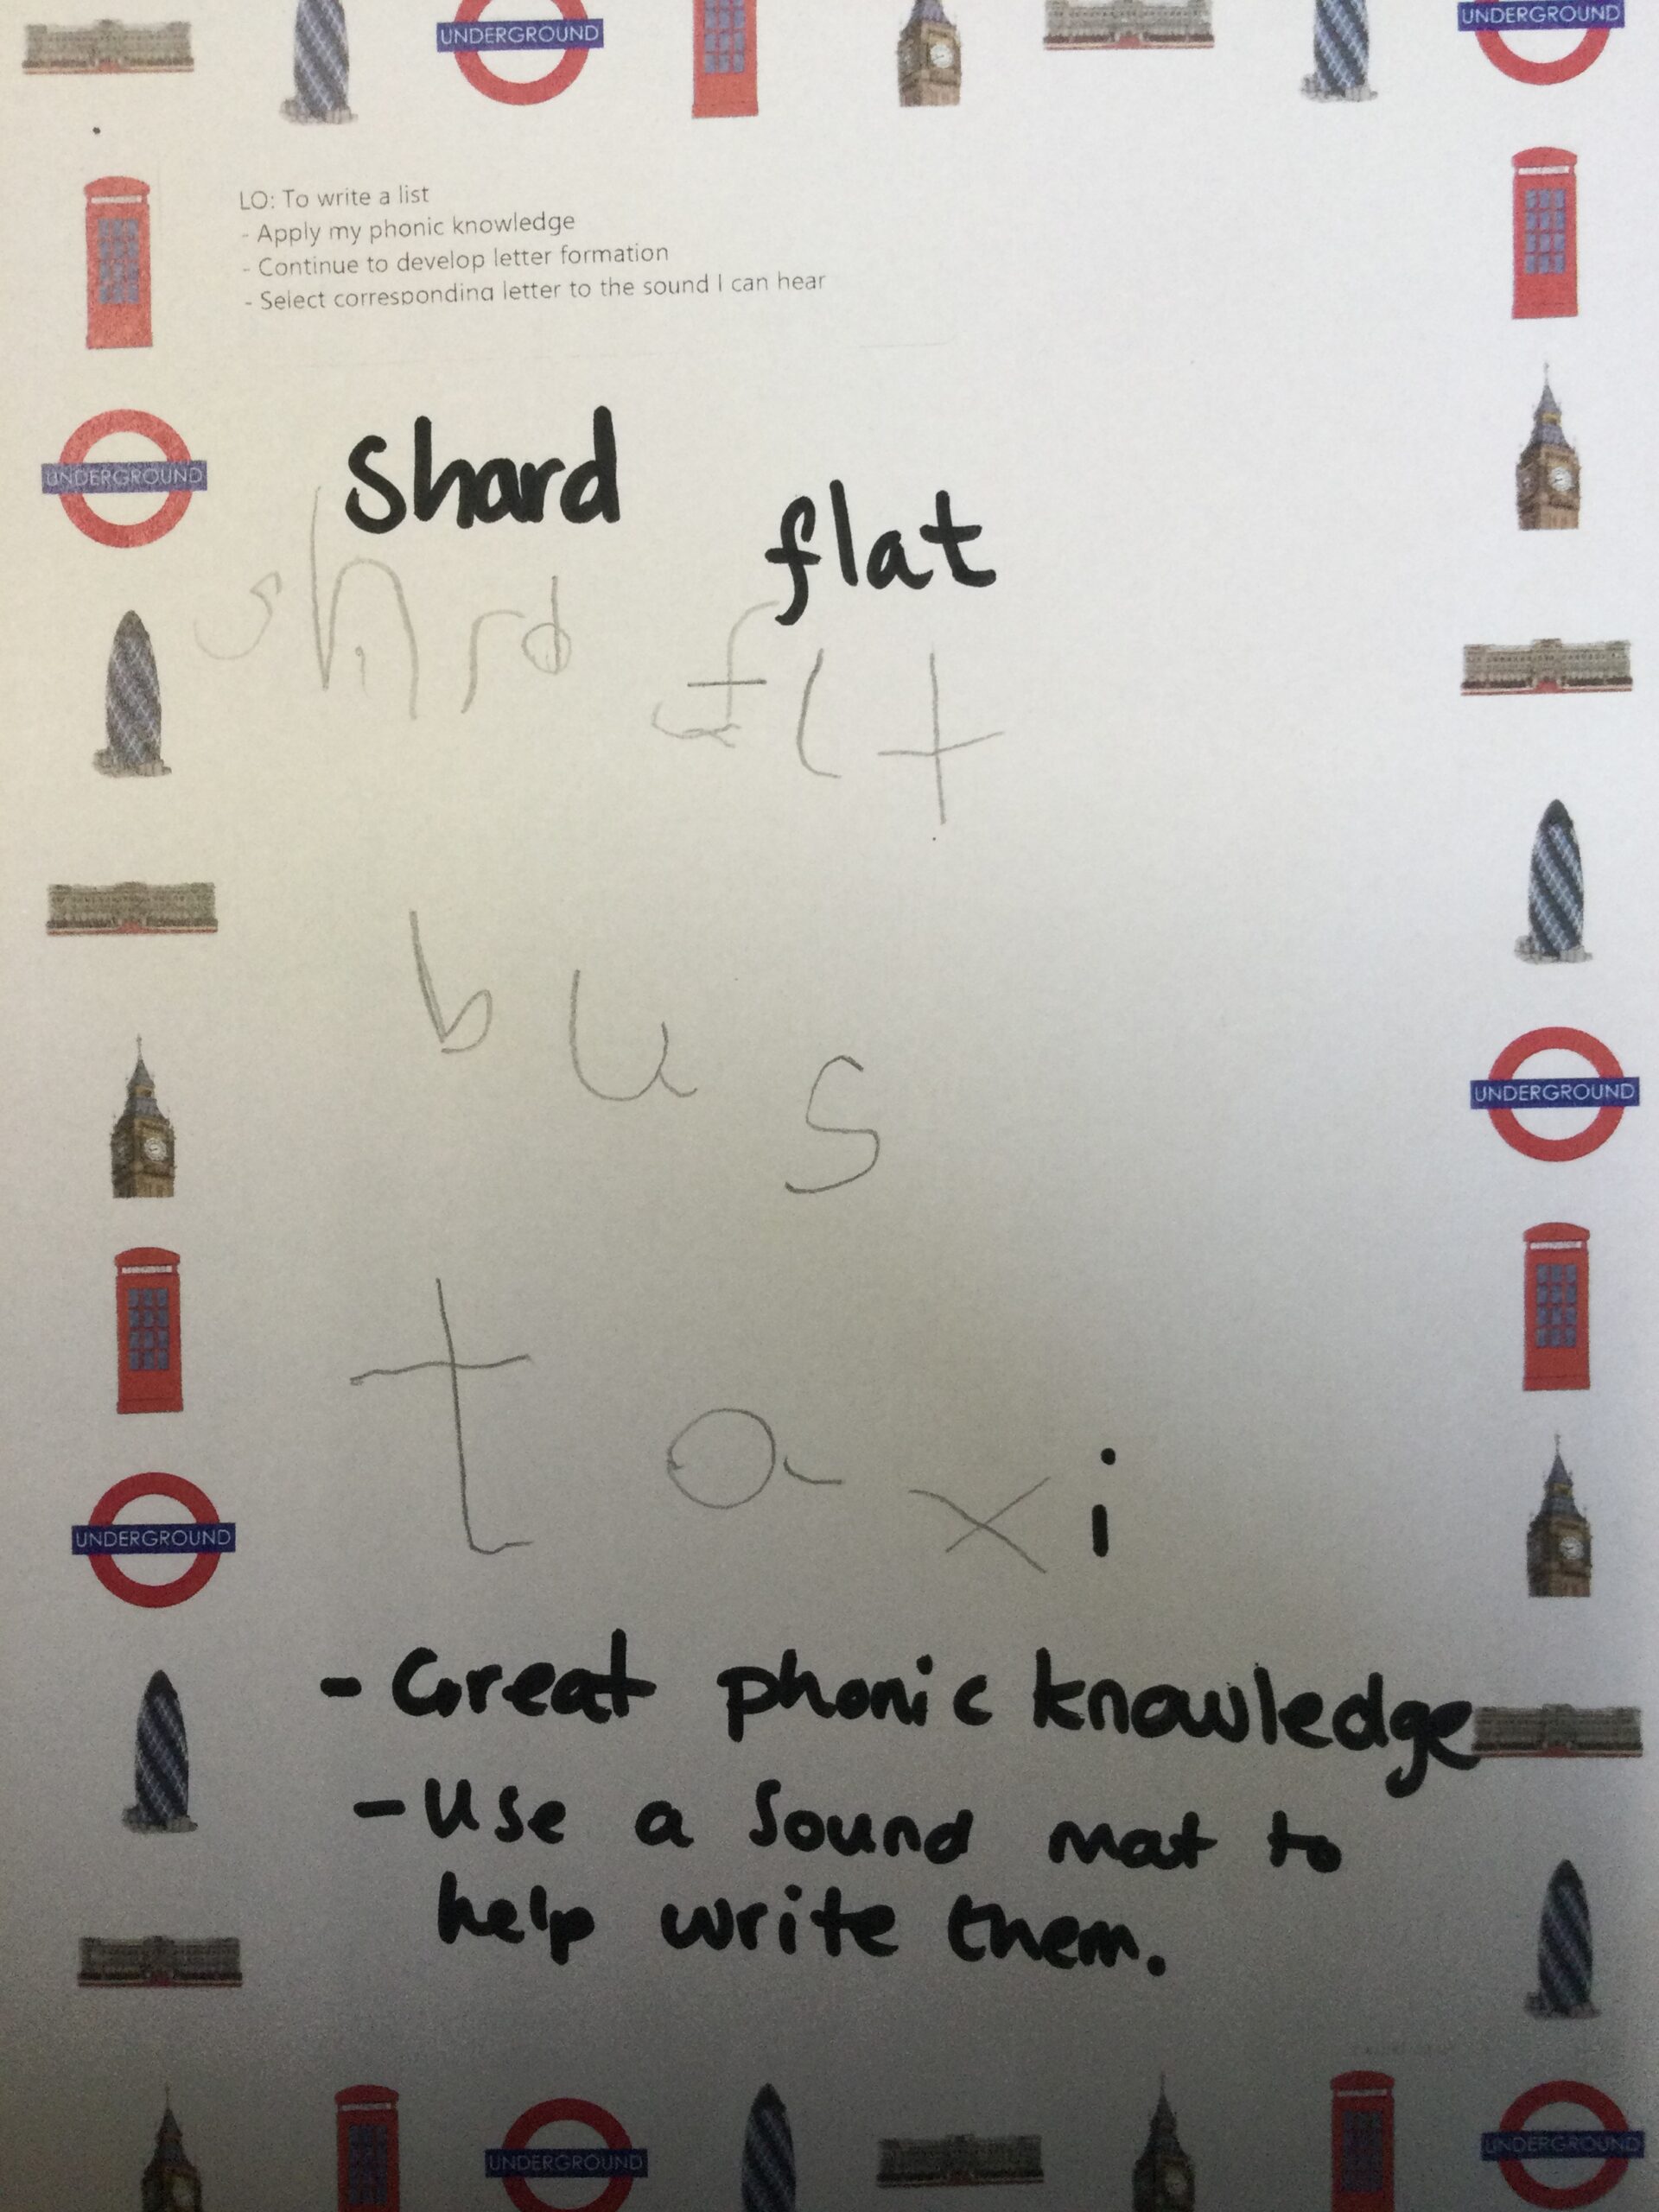 UNDERGROUND
UNDERGROUND
LO: To write a list
- Apply my phonic knowledge
- Continue to develop letter formation
- Select corresponding letter to the sound I can hear
UNDERGROUND
shard
flat
shrd
flt
bus
UNDERGROUND
taxi
UNDERGROUND
- Great phonic knowledge
- Use a sound mat to
help write them.
UNDERGROUND
UNDERGROUND